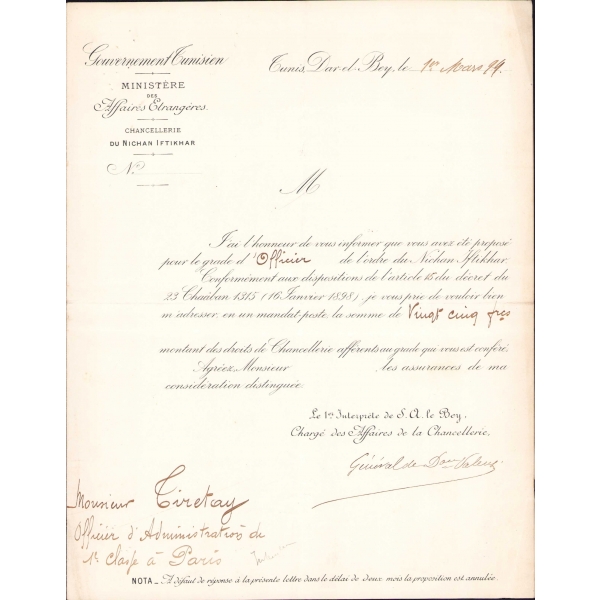 Gouvernement Tunisien
MINISTÈRE
DES
Affaires Etrangères.
CHANCELLERIE
DU NICHAN IFTIKHAR
N.
Tunis, Dar-el-Bey, le 1er Mars 99.
M
J'ai l'honneur de vous informer que vous avez été proposé
pour le grade d'Officier de l'ordre du Nichan Iftikhar.
Conformément aux dispositions de l'article 15 du décret du
23 Chaâban 1315 (16 Janvier 1898), je vous prie de vouloir bien
m'adresser, en un mandat poste, la somme de Vingt cinq frcs
montant des droits de Chancellerie afférents au grade qui vous est conféré.
Agréez, Monsieur les assurances de ma
considération distinguée.
Le 1er Interprète de S. A. le Bey,
Chargé des Affaires de la Chancellerie,
Général de
Monsieur Tiretay
Officier d'Administration de
1re Classe à Paris
NOTA _ A défaut de réponse à la présente lettre dans le délai de deux mois la proposition est annulée.